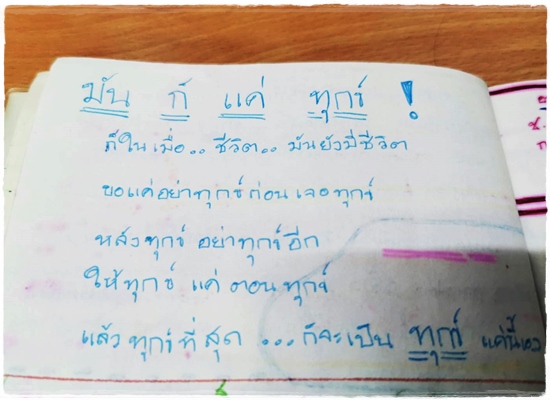 มัน ก็ แค่ ทุกข์ !
ก็ในเมื่อ.. ชีวิต.. มันยังมีชีวิต
ขอแค่อย่าทุกข์ก่อนเจอทุกข์
หลังทุกข์ อย่าทุกข์อีก
ให้ทุกข์ แค่ ตอนทุกข์
แล้วทุกข์ที่สุด ...ก็จะเป็น ทุกข์ แค่นี้เอง